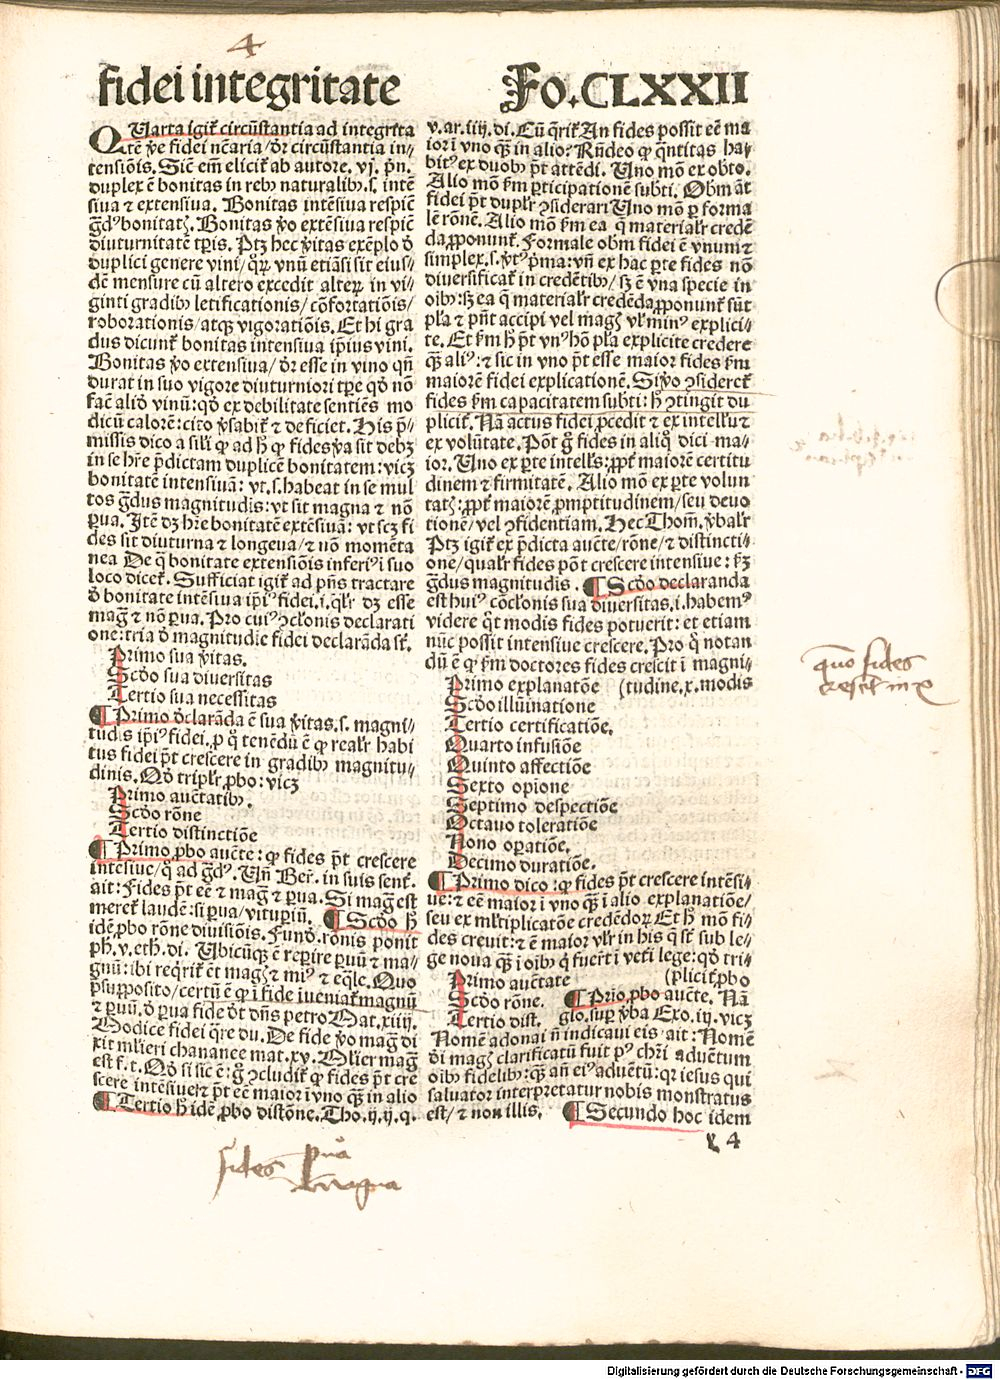 4
fidei integritate
Fo.CLXXII
QUarta igit̃ circũstantia ad integrita
tẽ ṽe fidei nẽaria/ dr̃ circũstantia in/
tensiõis. Siẽ em̃ elicit̃ ab autore. vj. pñ.
duplex ẽ bonitas in rebꝰ naturalibꝰ .s. intẽ
siua ⁊ extensiua. Bonitas intẽsiua respic̃
g̃dꝰ bonitatꝭ. Bonitas ṽo extẽsiua respic̃
diuturnitatẽ tp̃is. Ptꝫ hec ṽitas exẽplo d̃
duplici genere vini/ qr̃ vnũ etiãsi sit eius/
dẽ mensure cũ altero excedit alterꝝ in vi/
ginti gradibꝰ letificationis/ cõfortatiõis/
roborationis/ atqꝫ vigoratiõis. Et hi gra
dus dicunt̃ bonitas intensiua ip̃ius vini.
Bonitas ṽo extensiua/ dr̃ esse in vino qñ
durat in suo vigore diuturniori tp̃e qd̃ nõ
fac̃ aliđ vinũ: qd̃ ex debilitate sentiẽs mo
dicũ calorẽ: cito ṽsabit̃ ⁊ deficiet. His p̃/
missis dico a sil̃i ꝙ ad h̃ ꝙ fides ṽa sit debꝫ
in se hr̃e p̃dictam duplicẽ bonitatem: vicꝫ
bonitatẽ intensiuã: vt .s. habeat in se mul
tos g̃dus magnitudis: vt sit magna ⁊ nõ
ꝑua. Itẽ dꝫ hr̃e bonitatẽ extẽsiuã: vt scꝫ fi
des sit diuturna ⁊ longeua/ ⁊ nõ momẽta
nea De q̃ bonitate extensiõis inferiꝰ i suo
loco dicet̃. Sufficiat igit̃ ad pñs tractare
d̃ bonitate intẽsiua ip̃iꝰ fidei .i. ql̃r dꝫ esse
mag̃ ⁊ nõ ꝑua. Pro cuiꝰ ꝯclonis declarati
one: tria d̃ magnitudie fidei declarãda st̃.
Primo sua ṽitas.
Scđo sua diuersitas
Tertio sua necessitas
¶ Primo d̃clarãda ẽ sua ṽitas .s. magni/
tudis ip̃iꝰ fidei. ꝓ q̊ tenẽdũ ẽ ꝙ realr̃ habi
tus fidei pt̃ crescere in gradibꝰ magnitu/
dinis. Qđ triplr̃ ꝓbo: vicꝫ
Primo auc̃tatibꝰ.
Scđo rõne
Tertio distinctiõe
¶ Primo ꝓbo auc̃te: ꝙ fides pt̃ crescere
intẽsiue/ q̊ ad g̃dꝰ. Vñ Ber̃. in suis sent̃.
ait: Fides pt̃ eẽ ⁊ mag̃ ⁊ ꝑua. Si mag̃ est
meret̃ laudẽ: si ꝑua/ vituꝑiũ. ¶ Scđo h̃
idẽ ꝓbo rõne diuisiõis. Fund̃. rõnis ponit
ph̃. v. eth̃. di. Ubicũqꝫ ẽ reꝑire ꝑuũ ⁊ ma/
gnũ: ibi req̃rit̃ ẽt magꝭ ⁊ miꝰ ⁊ eq̃le. Quo
p̃supposito/ certũ ẽ ꝙ i fide iueniat̃ magnũ
⁊ ꝑuũ. d̃ ꝑua fide dt̃ dñs petro Mat. xiiij.
Modice fidei q̃re du. De fide ṽo mag̃ di
xit ml̃ieri chananee mat. xv. Mlier mag̃
est f. t. Qđ si sic ẽ: g̊ ꝯcludit̃ ꝙ fides pt̃ cre
scere intẽsiue/⁊ pt̃ eẽ maior i vno qꝫ̃ in alio
¶ Tertio h̃ idẽ ꝓbo distõne. Tho. ij. ij. q.
v. ar. iiij. di. Cũ q̃rit̃ An fides possit eẽ ma
ior i vno qꝫ̃ in alio? Rñdeo ꝙ q̃ntitas ha/
bitꝰ ex duobꝰ pt̃ attẽdi. Uno mõ ex obto.
Alio mõ ẜm ꝑticipationẽ subti. Obm ãt
fidei pt̃ duplr̃ ꝯsiderari Uno mõ ꝑ forma
lẽ rõnẽ. Alio mõ ẜm ea q̃ materialr̃ credẽ
da ꝓponunt̃. Formale obm fidei ẽ vnum ⁊
simplex .s. ṽitꝰ p̃ma: vñ ex hac ꝑte fides nõ
diuersificat̃ in credẽtibꝰ/ sꝫ ẽ vna specie in
oibꝰ: sꝫ ea q̃ materialr̃ credẽda ꝓponunt̃ sũt
pl̃a ⁊ pñt accipi vel magꝭ vl̃ minꝰ explici/
te. Et ẜm h̃ pt̃ vnꝰ hõ pl̃a explicite credere
qꝫ̃ aliꝰ: ⁊ sic in vno pt̃ esse maior fides ẜm
maiorẽ fidei explicationẽ. Si ṽo ꝯsideret̃
fides ẜm capacitatem subti: h̃ ꝯtingit du
plicit̃. Nã actus fidei ꝓcedit ⁊ ex intell̃u ⁊
ex volũtate. Põt g̊ fides in aliq̊ dici ma/
ior. Uno ex ꝑte intell̃s: ꝓpt̃ maiorẽ certitu
dinem ⁊ firmitatẽ. Alio mõ ex ꝑte volun
tatꝭ: ꝓpt̃ maiorẽ ꝓmptitudinem/ seu deuo
tionẽ/ vel ꝯfidentiam. Hec Thom. ṽbalr̃
Ptꝫ igit̃ ex p̃dicta auc̃te/ rõne/ ⁊ distincti/
one/ qualr̃ fides põt crescere intensiue: ẜꝫ
g̃dus magnitudis. ¶ Scđo declaranda
est huiꝰ cõclonis sua diuersitas .i. habemꝰ
videre q̊t modis fides potuerit: et etiam
nũc possit intensiue crescere. Pro q̊ notan
dũ ẽ ꝙ ẜm doctores fides crescit i magni/
Primo explanatõe (tudine .x. modis
Scđo illũinatione
Tertio certificatiõe.
Quarto infusiõe
Quinto affectiõe
Sexto opione
Septimo despectiõe
Octauo toleratiõe
Nono oꝑatiõe.
Decimo duratiõe.
¶ Primo dico: ꝙ fides pt̃ crescere intẽsi/
ue: ⁊ eẽ maior i vno qꝫ̃ i alio explanatiõe/
seu ex ml̃tiplicatõe credẽdoꝝ Et h̃ mõ fi/
des creuit: ⁊ ẽ maior vl̃r in his q̃ st̃ sub le/
ge noua qꝫ̃ i oibꝰ q̃ fuert̃ i veti lege: qđ tri/
Primo auc̃tate (plicit̃ ꝓbo
Scđo rõne. ¶ Prĩo ꝓbo auc̃te. Nã
Tertio dist. glo. suꝑ ṽba Exo. iij. vicꝫ
Nomẽ adonai ñ indicaui eis/ ait: Nomẽ
d̃i magꝭ clarificatũ fuit pꝰ chr̃i aduẽtum
oibꝰ fidelibꝰ: qꝫ̃ añ eiꝰ aduẽtũ: qr iesus qui
saluator interpretatur nobis monstratus
est/ ⁊ non illis. ¶ Secundo hoc idem
4
quo fides
crescit in x
fides ꝑua
magna
Digitalisierung gefördert durch die Deutsche Forschungsgemeinschaft - DFG